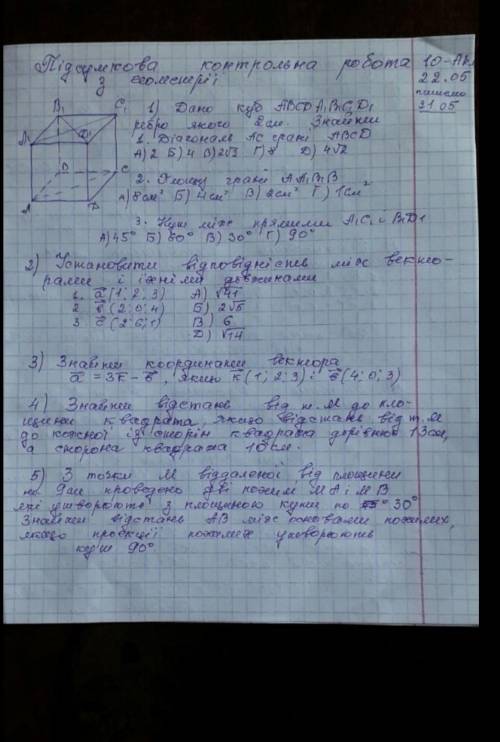 Підсумкова контрольна робота
з геометрії
10-А кл
22.05
пишемо
31.05
B₁ C₁
A₁ D₁
B C
A D
1) Дано куб ABCDA₁B₁C₁D₁
ребро якого 2см. Знайти
1. Діагональ AC грані ABCD
А) 2 Б) 4 В) 2√3 Г) 8 Д) 4√2
2. Площу грані AA₁B₁B
А) 8см² Б) 4см² В) 2см² Г) 1см²
3. Кут між прямими A₁C₁ і B₁D₁
А) 45° Б) 60° В) 30° Г) 90°
2) Установити відповідність між векто-
рами і їхніми довжинами
1. a (1; 2; 3) А) √41
2. b (2; 0; 4) Б) 2√5
3. c (2; 6; 1) В) 6
Д) √14
3) Знайти координати вектора
a = 3k - b, якщо k (1; 2; 3); b (4; 0; 3)
4) Знайти відстань від т. M до пло-
щини квадрата, якщо відстань від т. M
до кожної із сторін квадрата дорівнює 13см,
а сторона квадрата 10см.
5) З точки M віддаленої від площини
на 9см проведено дві похилі MA і MB
які утворюють з площиною кути по 30°
Знайти відстань AB між основами похилих,
якщо проекції похилих утворюють
кут 90°